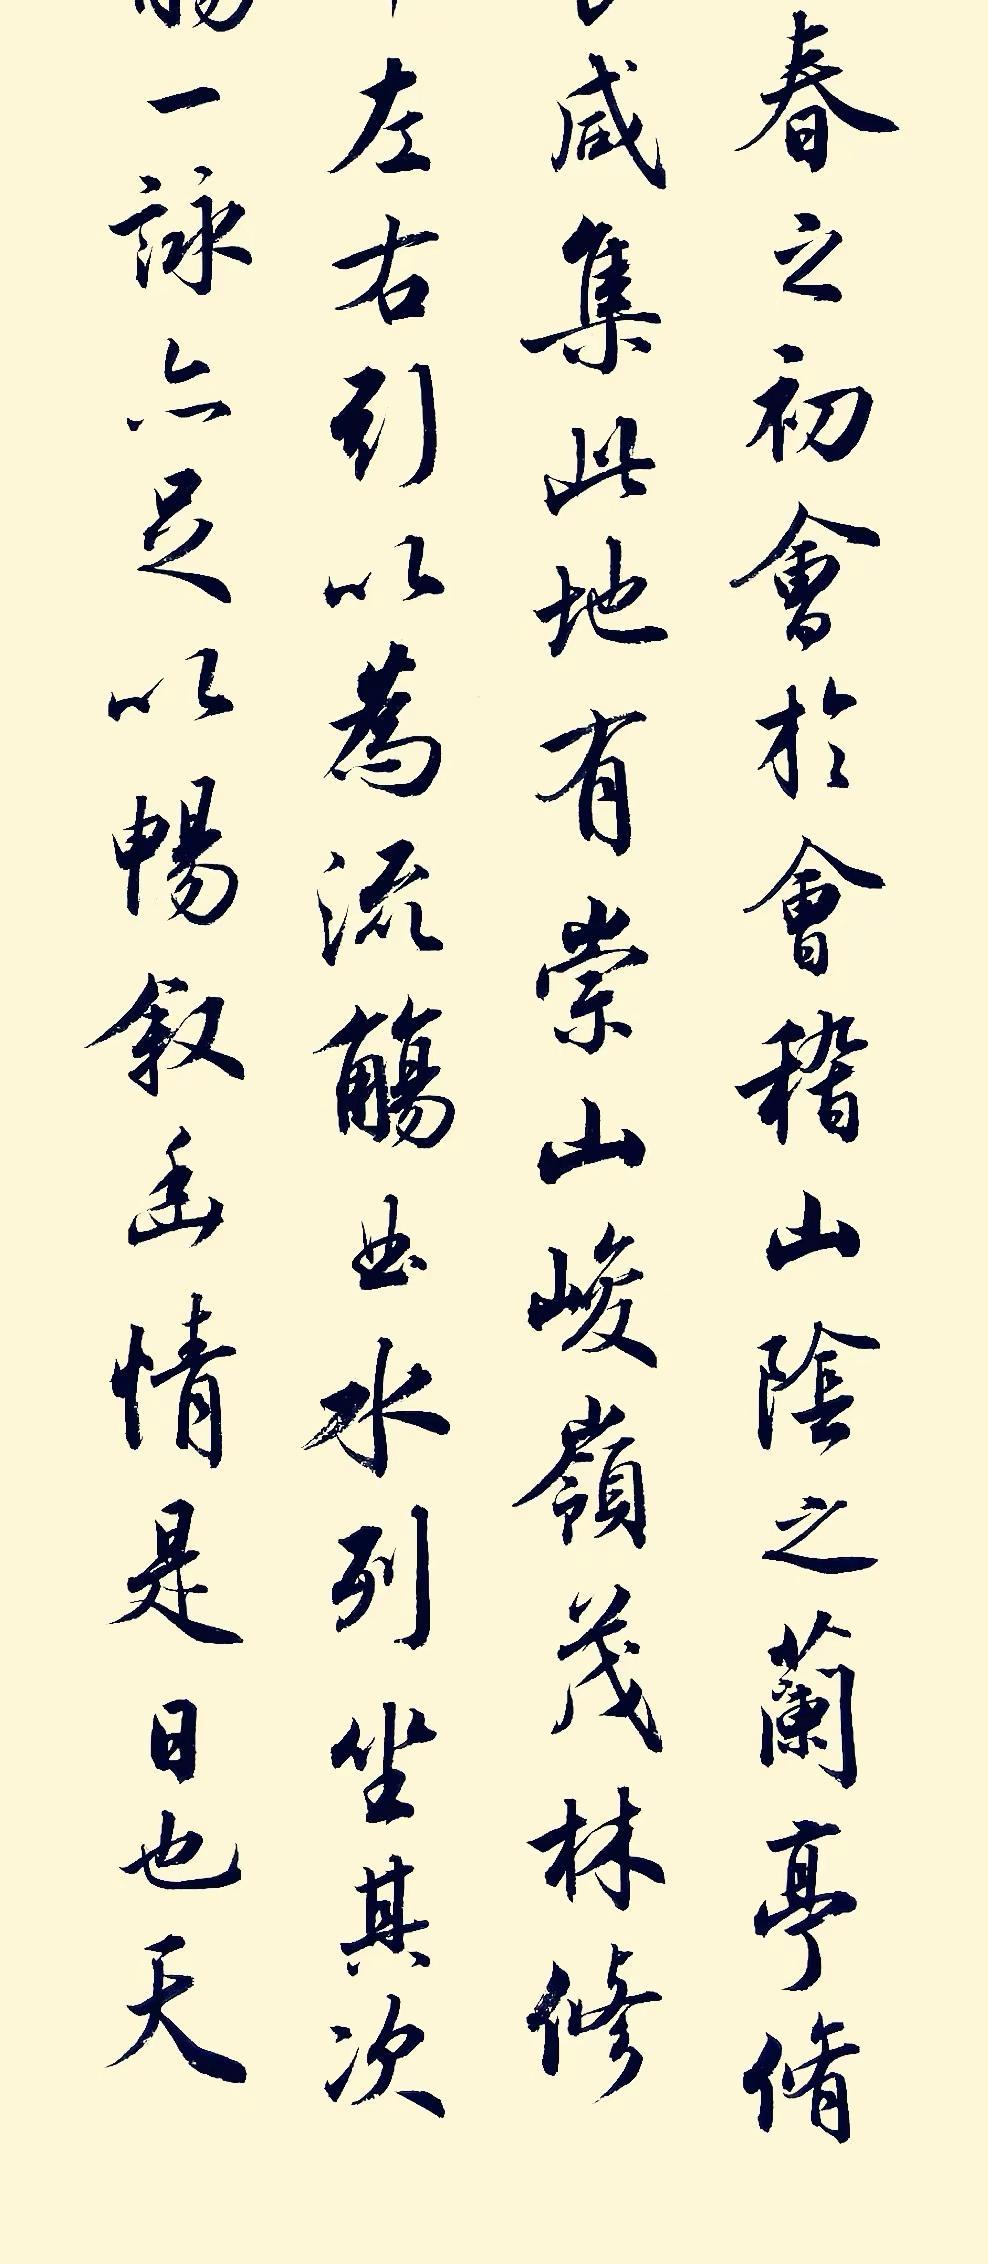 春之初會於會稽山陰之蘭亭脩
咸集此地有崇山峻嶺茂林修
左右引以為流觴曲水列坐其次
一詠亦足以暢敘幽情是日也天